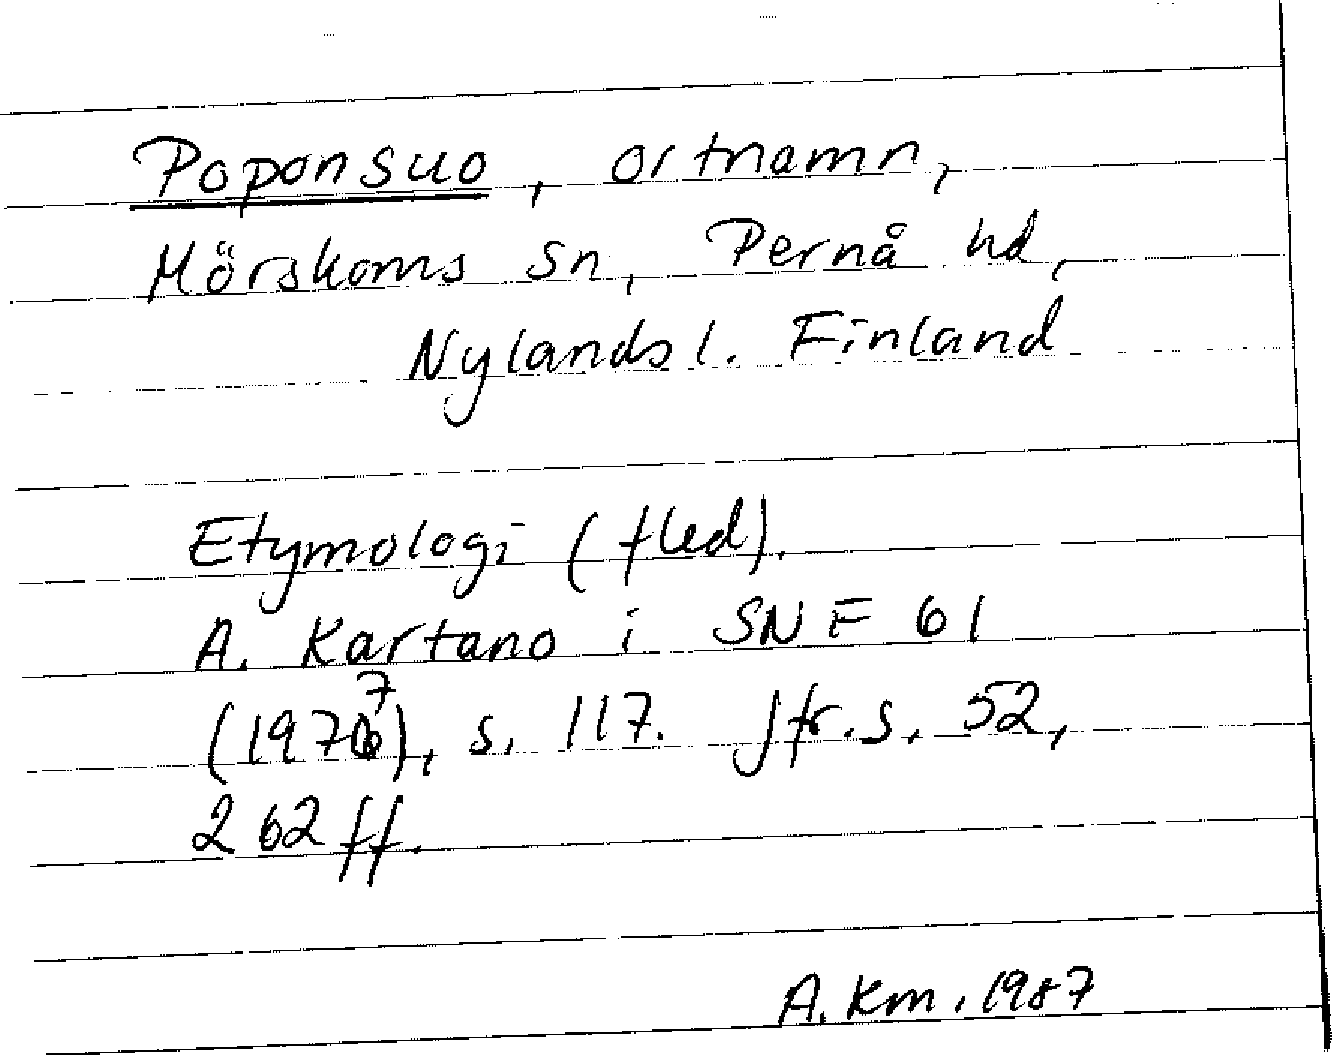 Poponsuo, ortnamn,
Mörskoms sn, Pernå hd,
Nylands l. Finland
Etymologi (fled).
A. Kartano i SNF 61
(1977), s. 117. Jfr. s. 52,
262 ff.
A. Km. 1987